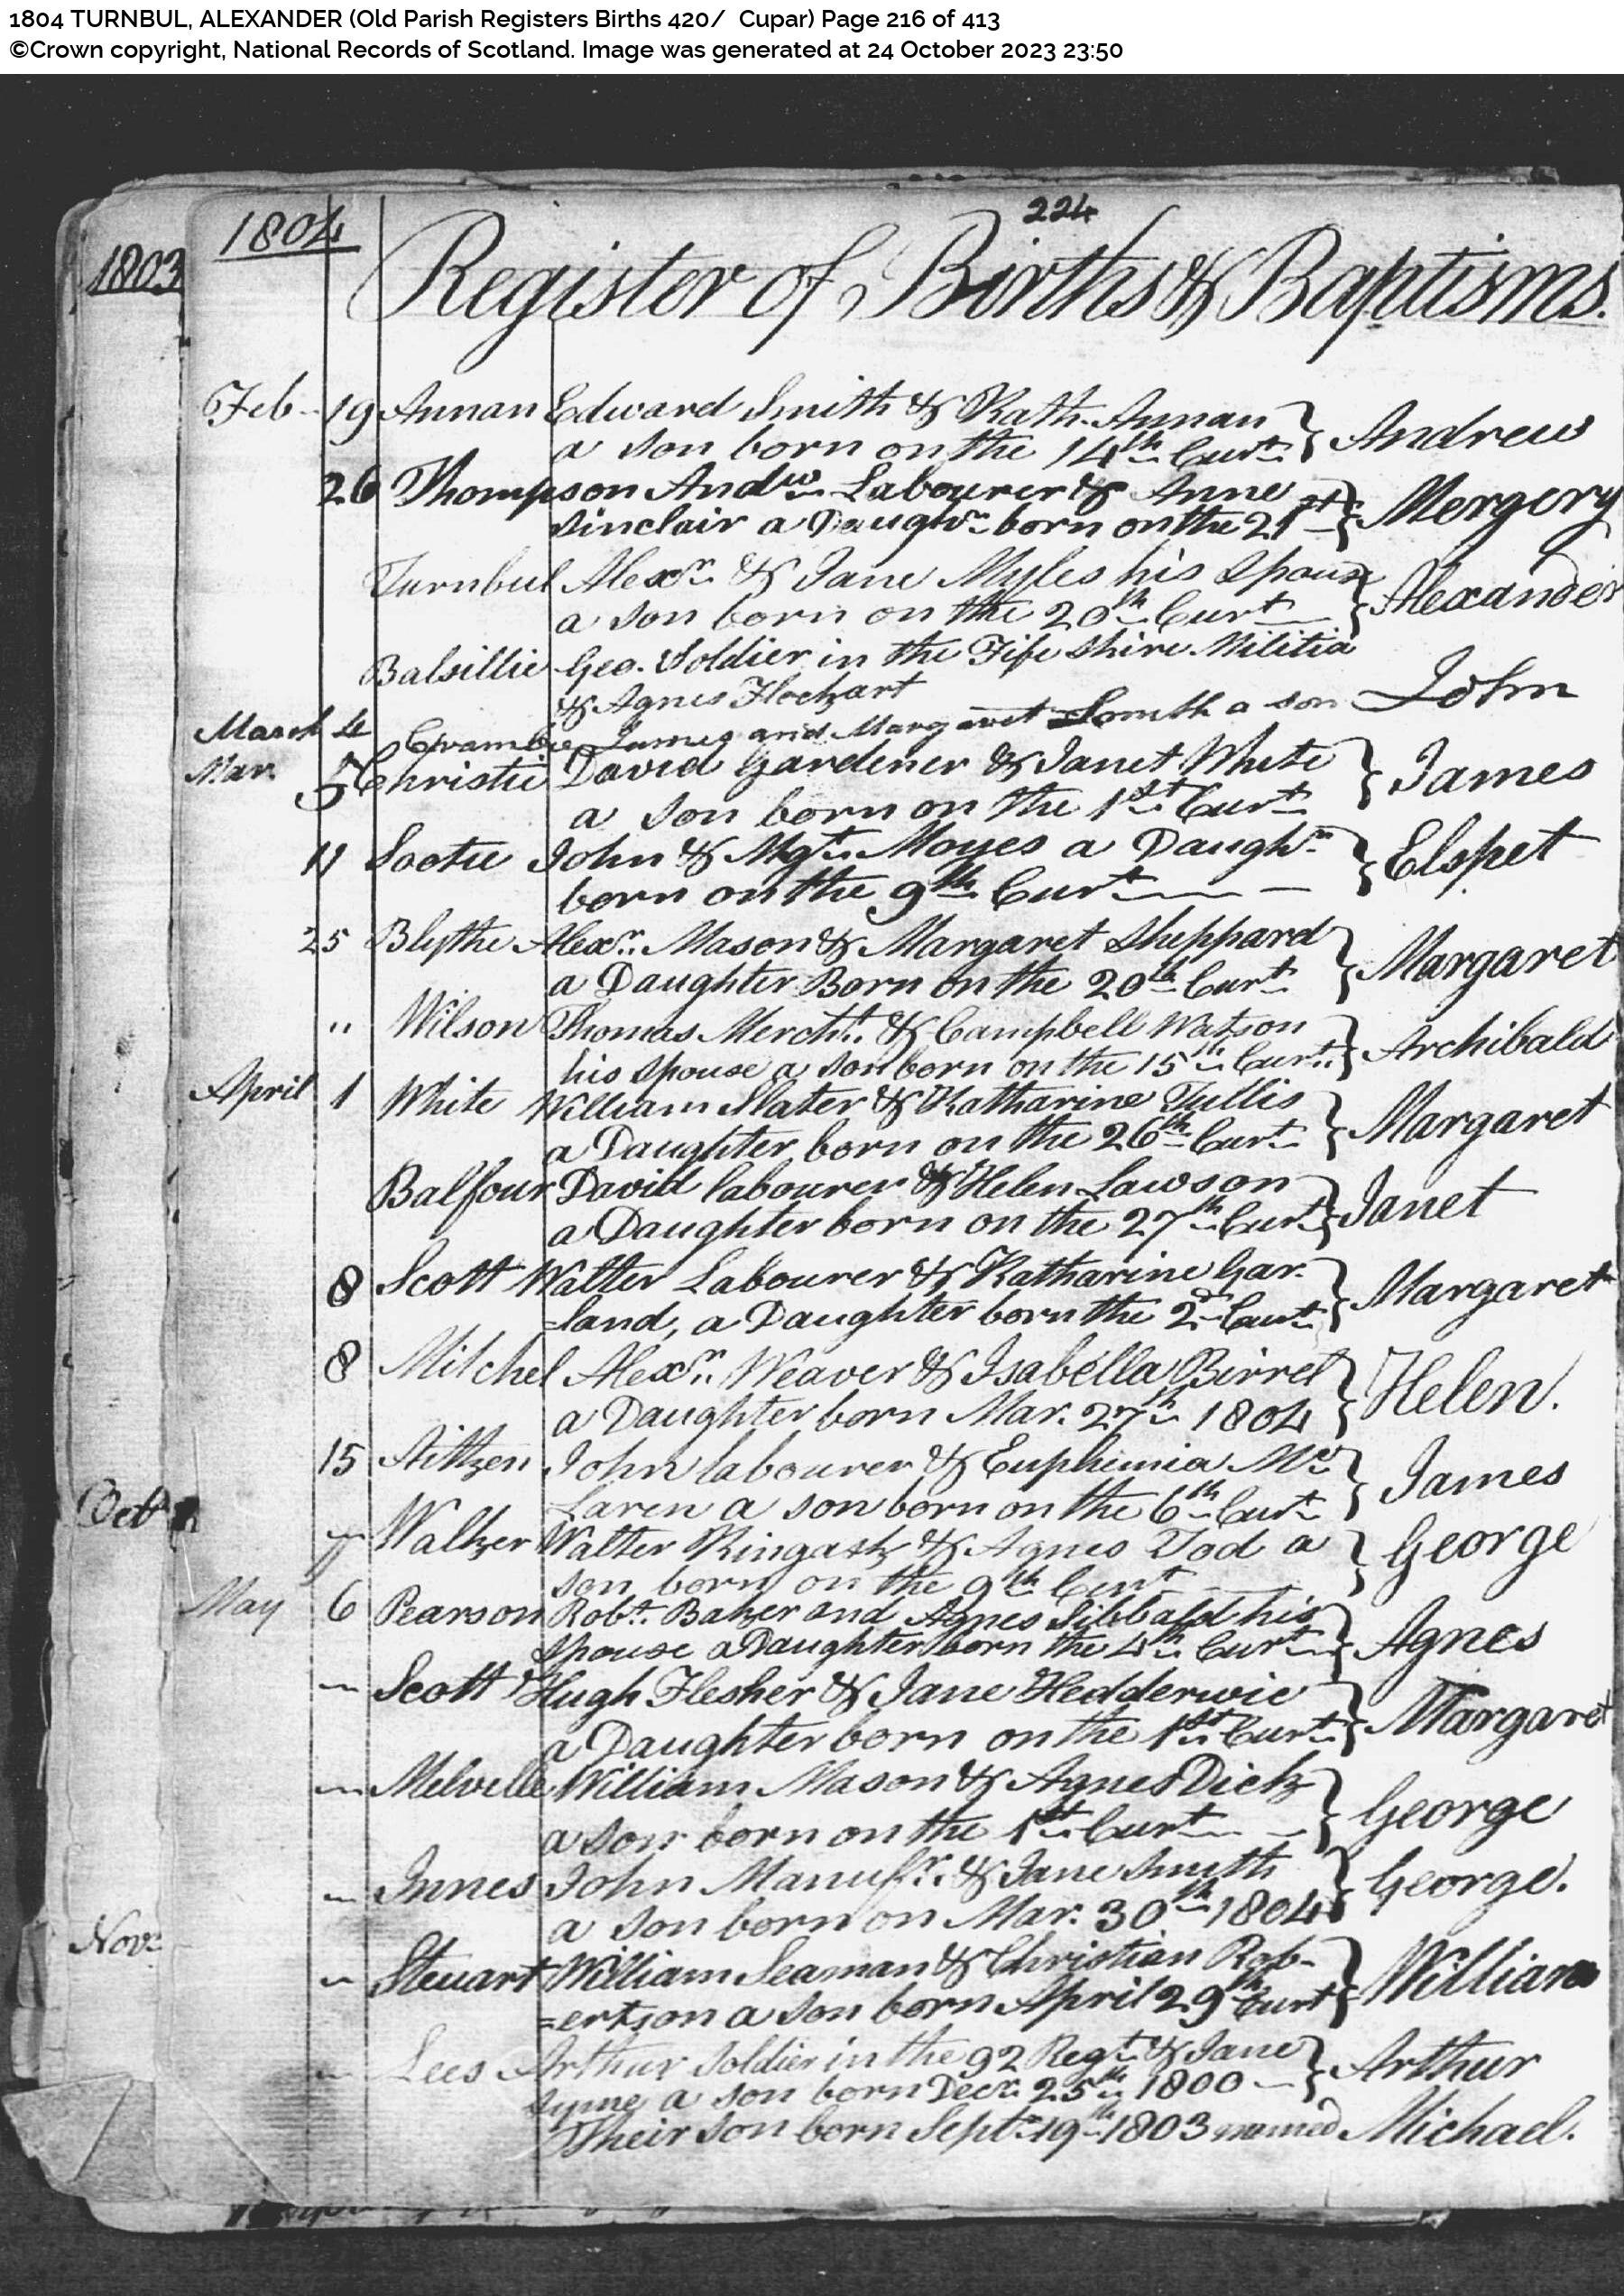 1804 TURNBUL, ALEXANDER (Old Parish Registers Births 420/ Cupar) Page 216 of 413
©Crown copyright, National Records of Scotland. Image was generated at 24 October 2023 23:50
224
1803
1804
Register of Births & Baptisms.
Feb 19 Annan Edward Smith & Kath. Annan
a son born on the 14th Curt } Andrew
26 Thompson Andw Labourer & Anne
Sinclair a Daughr born on the 21st } Mergery
Turnbul Alexr & Jane Myles his Spouse
a son born on the 20th Curt } Alexander
Balsillie Geo. Soldier in the Fife Shire Militia
& Agnes Flockart John
March 4 Crambie James and Margaret Smith a son
Mar. 5 Christie David Gardener & Janet White
a son born on the 1st Curt } James
11 Sootie John & Mgt. Moyes a Daughr
born on the 9th Curt } Elspet
25 Blythe Alexr. Mason & Margaret Sheppard
a Daughter Born on the 20th Curt } Margaret
" Wilson Thomas Mercht. & Campbell Watson
his spouse a son born on the 15th Curt. } Archibald
April 1 White William Slater & Katharine Tullis
a Daughter born on the 26th Curt } Margaret
Balfour David labourer & Helen Lawson
a Daughter born on the 27th Curt } Janet
8 Scott Walter Labourer & Katharine Gar.
=land, a Daughter born the 2d Curt } Margaret
8 Mitchel Alexr. Weaver & Isabella Birrel
a Daughter born Mar. 27th 1804 } Helen.
15 Aitken John labourer & Euphimia Mc
Laren a son born on the 6th Curt } James
Oct
Walker Walter Kingask & Agnes Tod a
son born on the 9th Curt } George
May 6 Pearson Robt. Baker and Agnes Sibbald his
Spouse a Daughter born the 4th Curt } Agnes
Scott Hugh Flesher & Jane Hedderwic
a Daughter born on the 1st Curt } Margaret
Melville William Mason & Agnes Dick
a son born on the 1st Curt } George
Innes John Manufr. & Jane Smith
a son born on Mar. 30th 1804 } George.
Nov.
Steuart William Seaman & Christian Rob-
=ertson a son born April 29th Curt } William
Lees Arthur Soldier in the 92 Regt & Jane
Syme a son born Decr. 25th 1800 } Arthur
Their son born Sept. 19th 1803 named Michael.